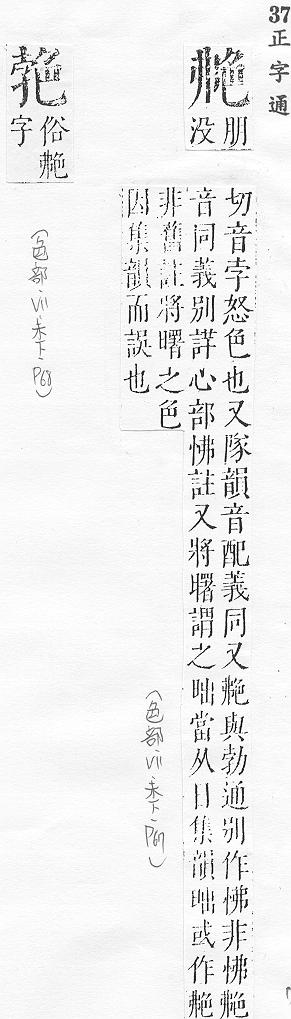 37正字通
艴
朋
没
切音孛怒色也又隊韻音配義同又艴與勃通别作怫非怫艴
音同義别詳心部怫註又將曙謂之昢當从日集韻昢或作艴
非舊註將曙之色
因集韻而誤也
(色部·未下·P67)
俗艴
字
(色部·未下·P68)